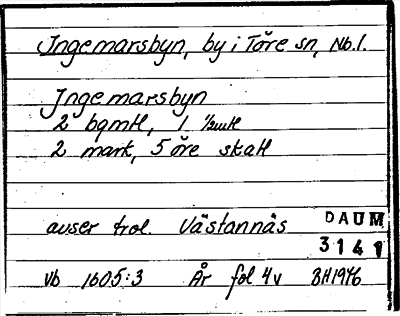 Ingemarsbyn, by i Töre sn, Nb.l.
Ingemarsbyn
2 bqmtl, 1 1/2mtl
2 mark, 5 öre skatt
avser trol. Västannäs
DAUM
3141
Vb 1605:3 År fol 4v BH1976